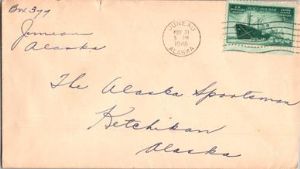 Box 399
Juneau
Alaska
JUNEAU
5 PM
ALASKA
The Alaska Sportsman
Ketchikan
Alaska